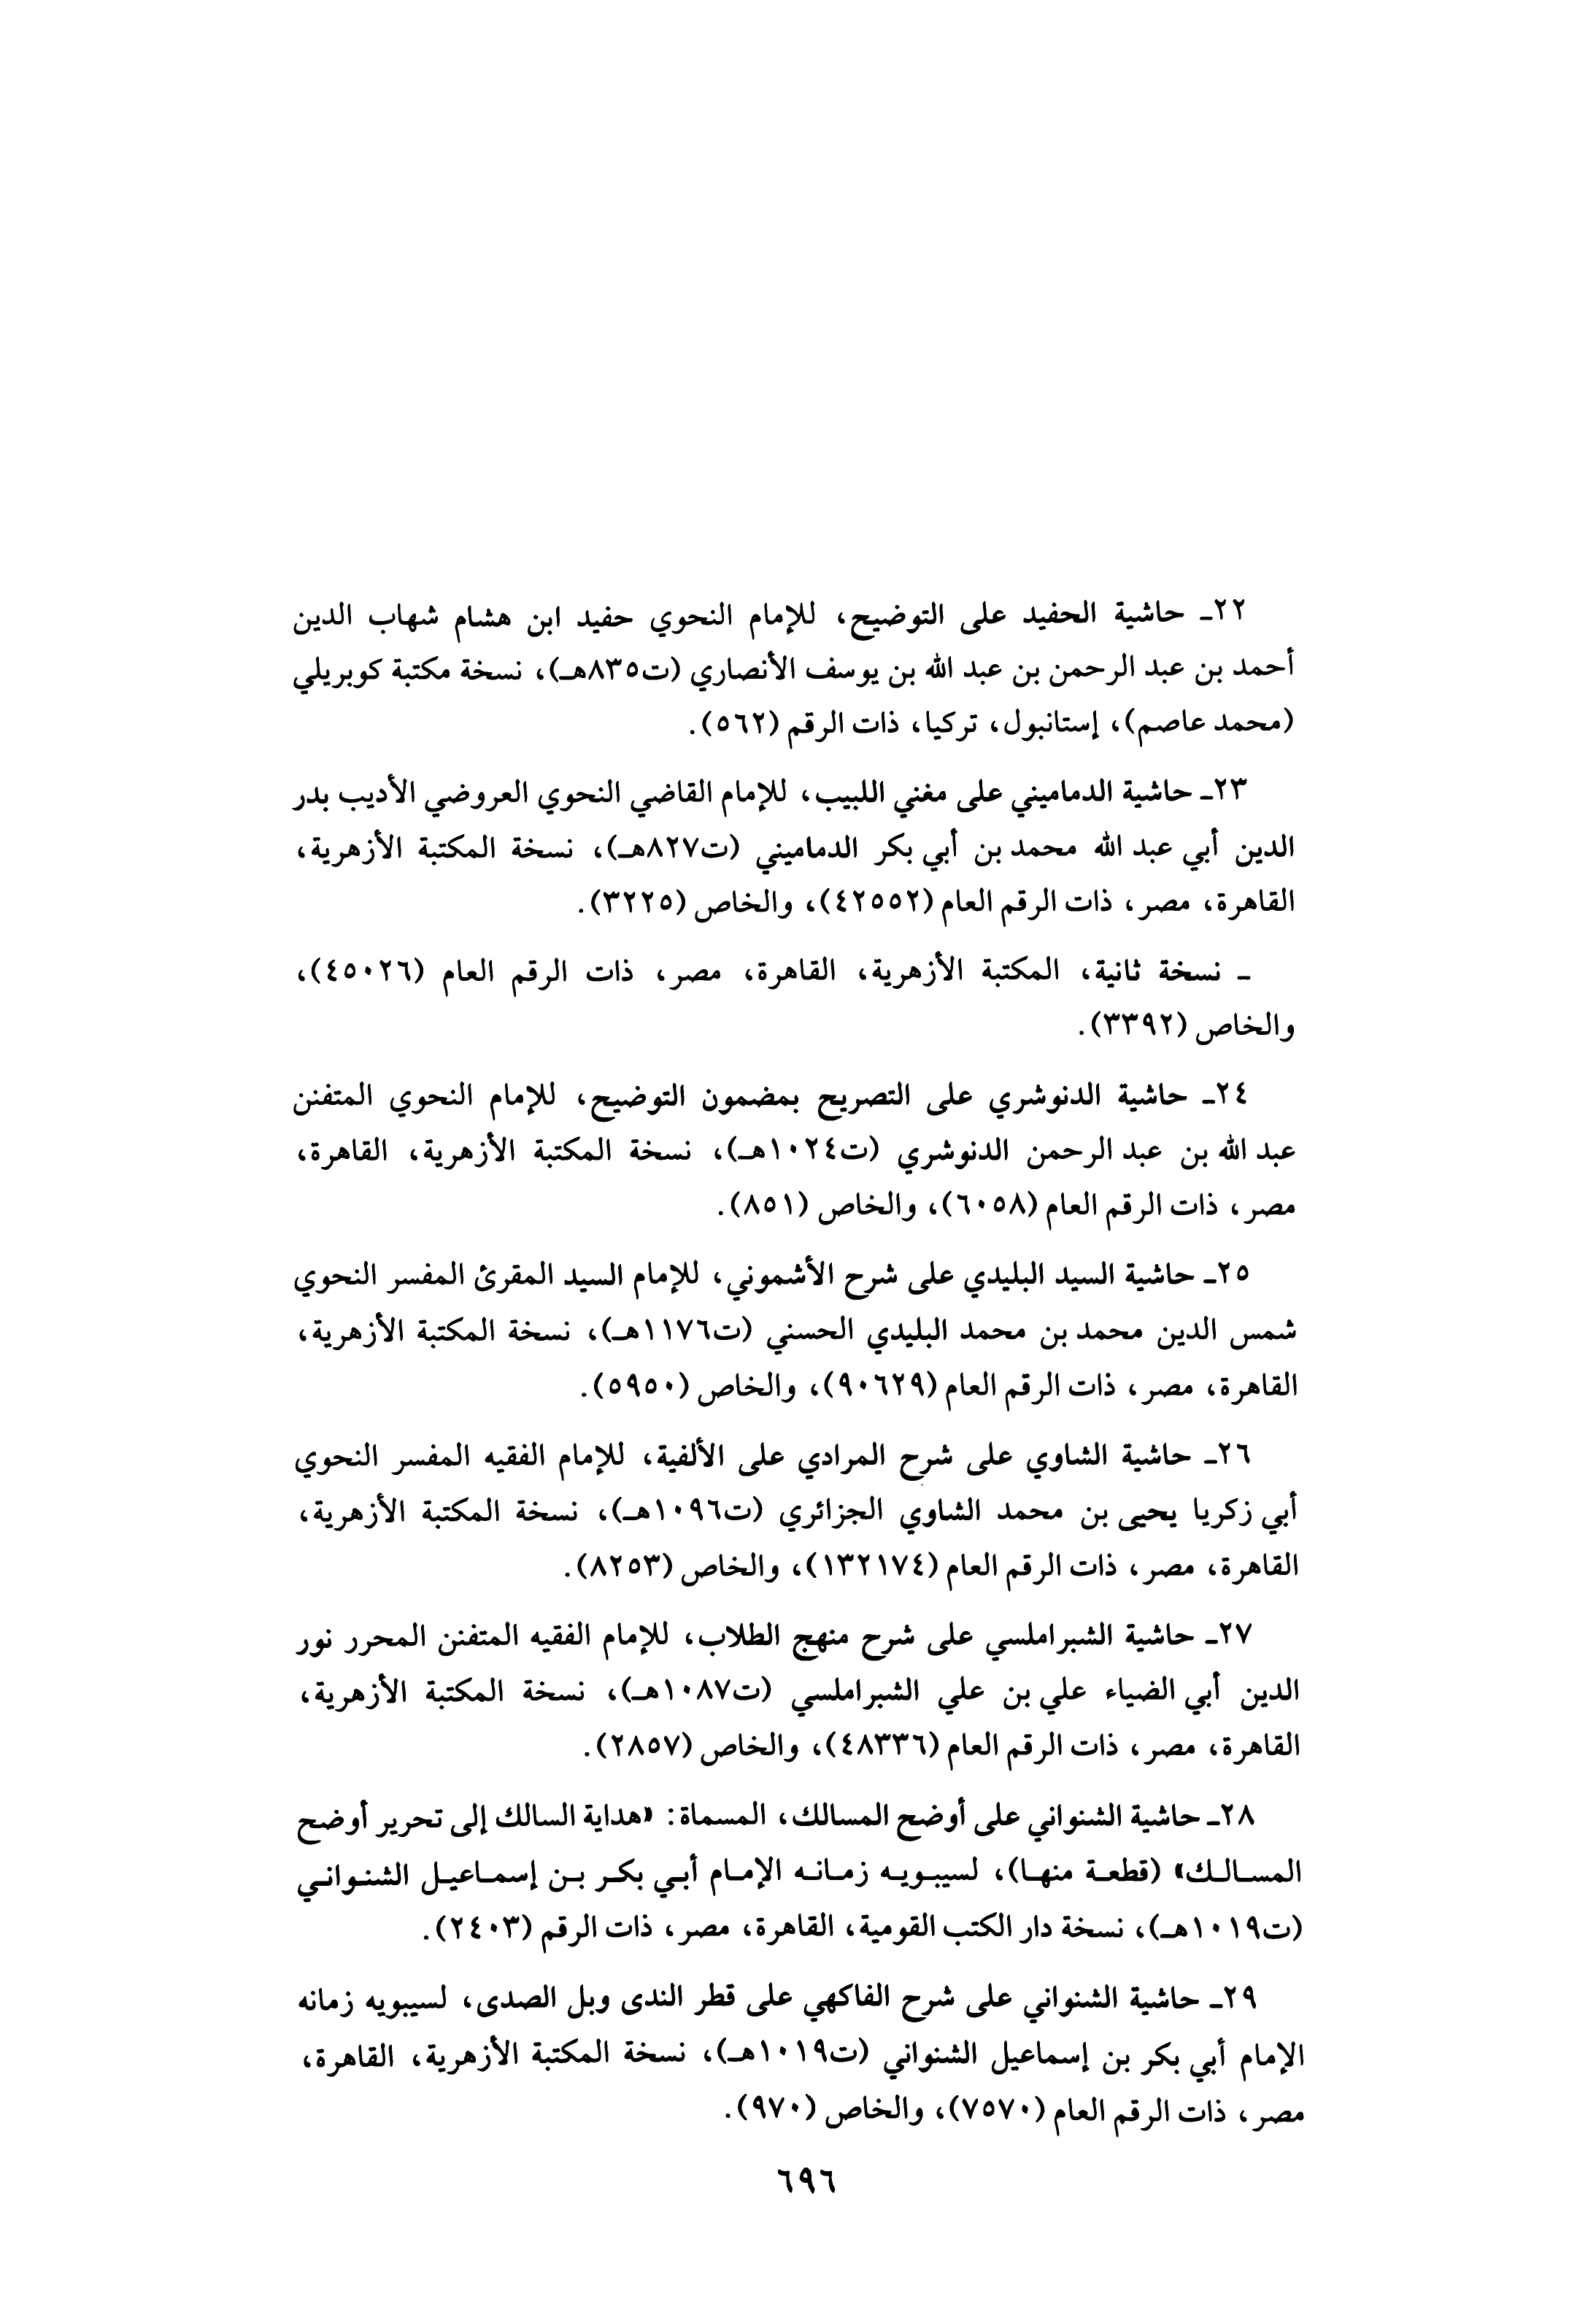 ٢٢ـ حاشية الحفيد على التوضيح، للإمام النحوي حفيد ابن هشام شهاب الدين
أحمد بن عبد الرحمن بن عبد الله بن يوسف الأنصاري (ت٨٣٥هـ)، نسخة مكتبة كوبريلي
(محمد عاصم)، إستانبول، تركيا، ذات الرقم (٥٦٢).
٢٣ـ حاشية الدماميني على مغني اللبيب، للإمام القاضي النحوي العروضي الأديب بدر
الدين أبي عبد الله محمد بن أبي بكر الدماميني (ت٨٢٧هـ)، نسخة المكتبة الأزهرية،
القاهرة، مصر، ذات الرقم العام (٤٢٥٥٢)، والخاص (٣٢٢٥).
ـ نسخة ثانية، المكتبة الأزهرية، القاهرة، مصر، ذات الرقم العام (٤٥٠٢٦)،
والخاص (٣٣٩٢).
٢٤ـ حاشية الدنوشري على التصريح بمضمون التوضيح، للإمام النحوي المتفنن
عبد الله بن عبد الرحمن الدنوشري (ت١٠٢٤هـ)، نسخة المكتبة الأزهرية، القاهرة،
مصر، ذات الرقم العام (٦٠٥٨)، والخاص (٨٥١).
٢٥ـ حاشية السيد البليدي على شرح الأشموني، للإمام السيد المقرئ المفسر النحوي
شمس الدين محمد بن محمد البليدي الحسني (ت١١٧٦هـ)، نسخة المكتبة الأزهرية،
القاهرة، مصر، ذات الرقم العام (٩٠٦٢٩)، والخاص (٥٩٥٠).
٢٦ـ حاشية الشاوي على شرح المرادي على الألفية، للإمام الفقيه المفسر النحوي
أبي زكريا يحيى بن محمد الشاوي الجزائري (ت١٠٩٦هـ)، نسخة المكتبة الأزهرية،
القاهرة، مصر، ذات الرقم العام (١٣٢١٧٤)، والخاص (٨٢٥٣).
٢٧ـ حاشية الشبراملسي على شرح منهج الطلاب، للإمام الفقيه المتفنن المحرر نور
الدين أبي الضياء علي بن علي الشبراملسي (ت١٠٨٧هـ)، نسخة المكتبة الأزهرية،
القاهرة، مصر، ذات الرقم العام (٤٨٣٣٦)، والخاص (٢٨٥٧).
٢٨ـ حاشية الشنواني على أوضح المسالك، المسماة: «هداية السالك إلى تحرير أوضح
المسالك» (قطعة منها)، لسيبويه زمانه الإمام أبي بكر بن إسماعيل الشنواني
(ت١٠١٩هـ)، نسخة دار الكتب القومية، القاهرة، مصر، ذات الرقم (٢٤٠٣).
٢٩ـ حاشية الشنواني على شرح الفاكهي على قطر الندى وبل الصدى، لسيبويه زمانه
الإمام أبي بكر بن إسماعيل الشنواني (ت١٠١٩هـ)، نسخة المكتبة الأزهرية، القاهرة،
مصر، ذات الرقم العام (٧٥٧٠)، والخاص (٩٧٠).
٦٩٦